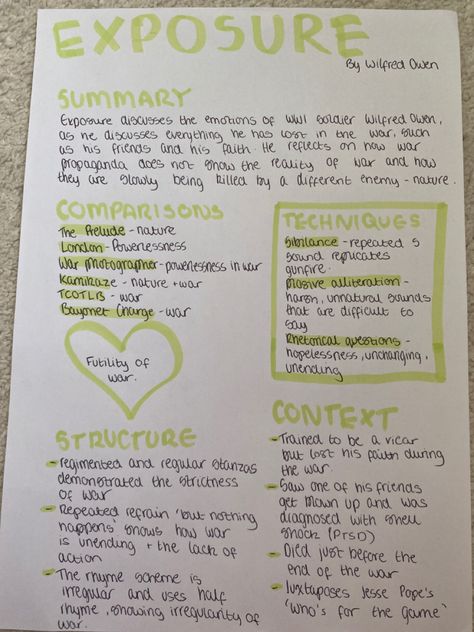 EXPOSURE
By Wilfred Owen
SUMMARY
Exposure discusses the emotions of WW1 soldier Wilfred Owen,
as he discusses everything he has lost in the war, such
as his friends and his faith. He reflects on how war
propaganda does not show the reality of war and how
they are slowly being killed by a different enemy - nature.
COMPARISONS
The Prelude - nature
London - Powerlessness
War photographer - powerlessness in war
Kamikaze - nature + war
TCOTLB - war
Bayonet Charge - war
Futility of
war.
TECHNIQUES
Sibilance - repeated s
sound replicates
gunfire.
Plosive alliteration -
harsh, unnatural sounds
that are difficult to
say
Rhetorical questions -
hopelessness, unchanging,
unending
STRUCTURE
- regimented and regular stanzas
demonstrated the strictness
of war
- Repeated refrain 'but nothing
happens' shows how war
is unending + the lack of
action
- The rhyme scheme is
irregular and uses half
rhyme, showing irregularity of
war.
CONTEXT
- Trained to be a vicar
but lost his faith during
the war.
- Saw one of his friends
get blown up and was
diagnosed with shell
shock (PTSD)
- Died just before the
end of the war
- Juxtaposes Jesse Pope's
'Who's for the game'